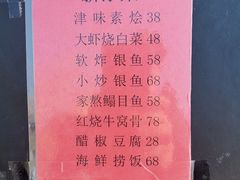 津味素烩38
大虾烧白菜48
软炸银鱼58
小炒银鱼68
家熬鳎目鱼58
红烧牛窝骨78
醋椒豆腐28
海鲜捞饭68